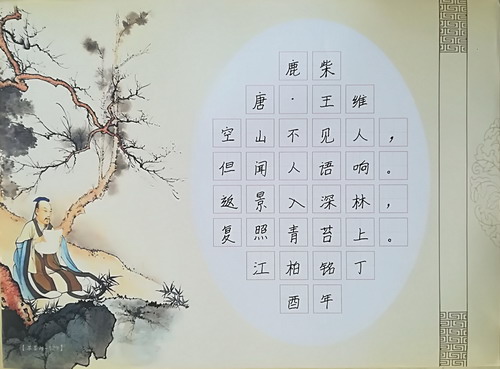 鹿柴
唐·王维
空山不见人，
但闻人语响。
返景入深林，
复照青苔上。
江柏铭丁
酉年